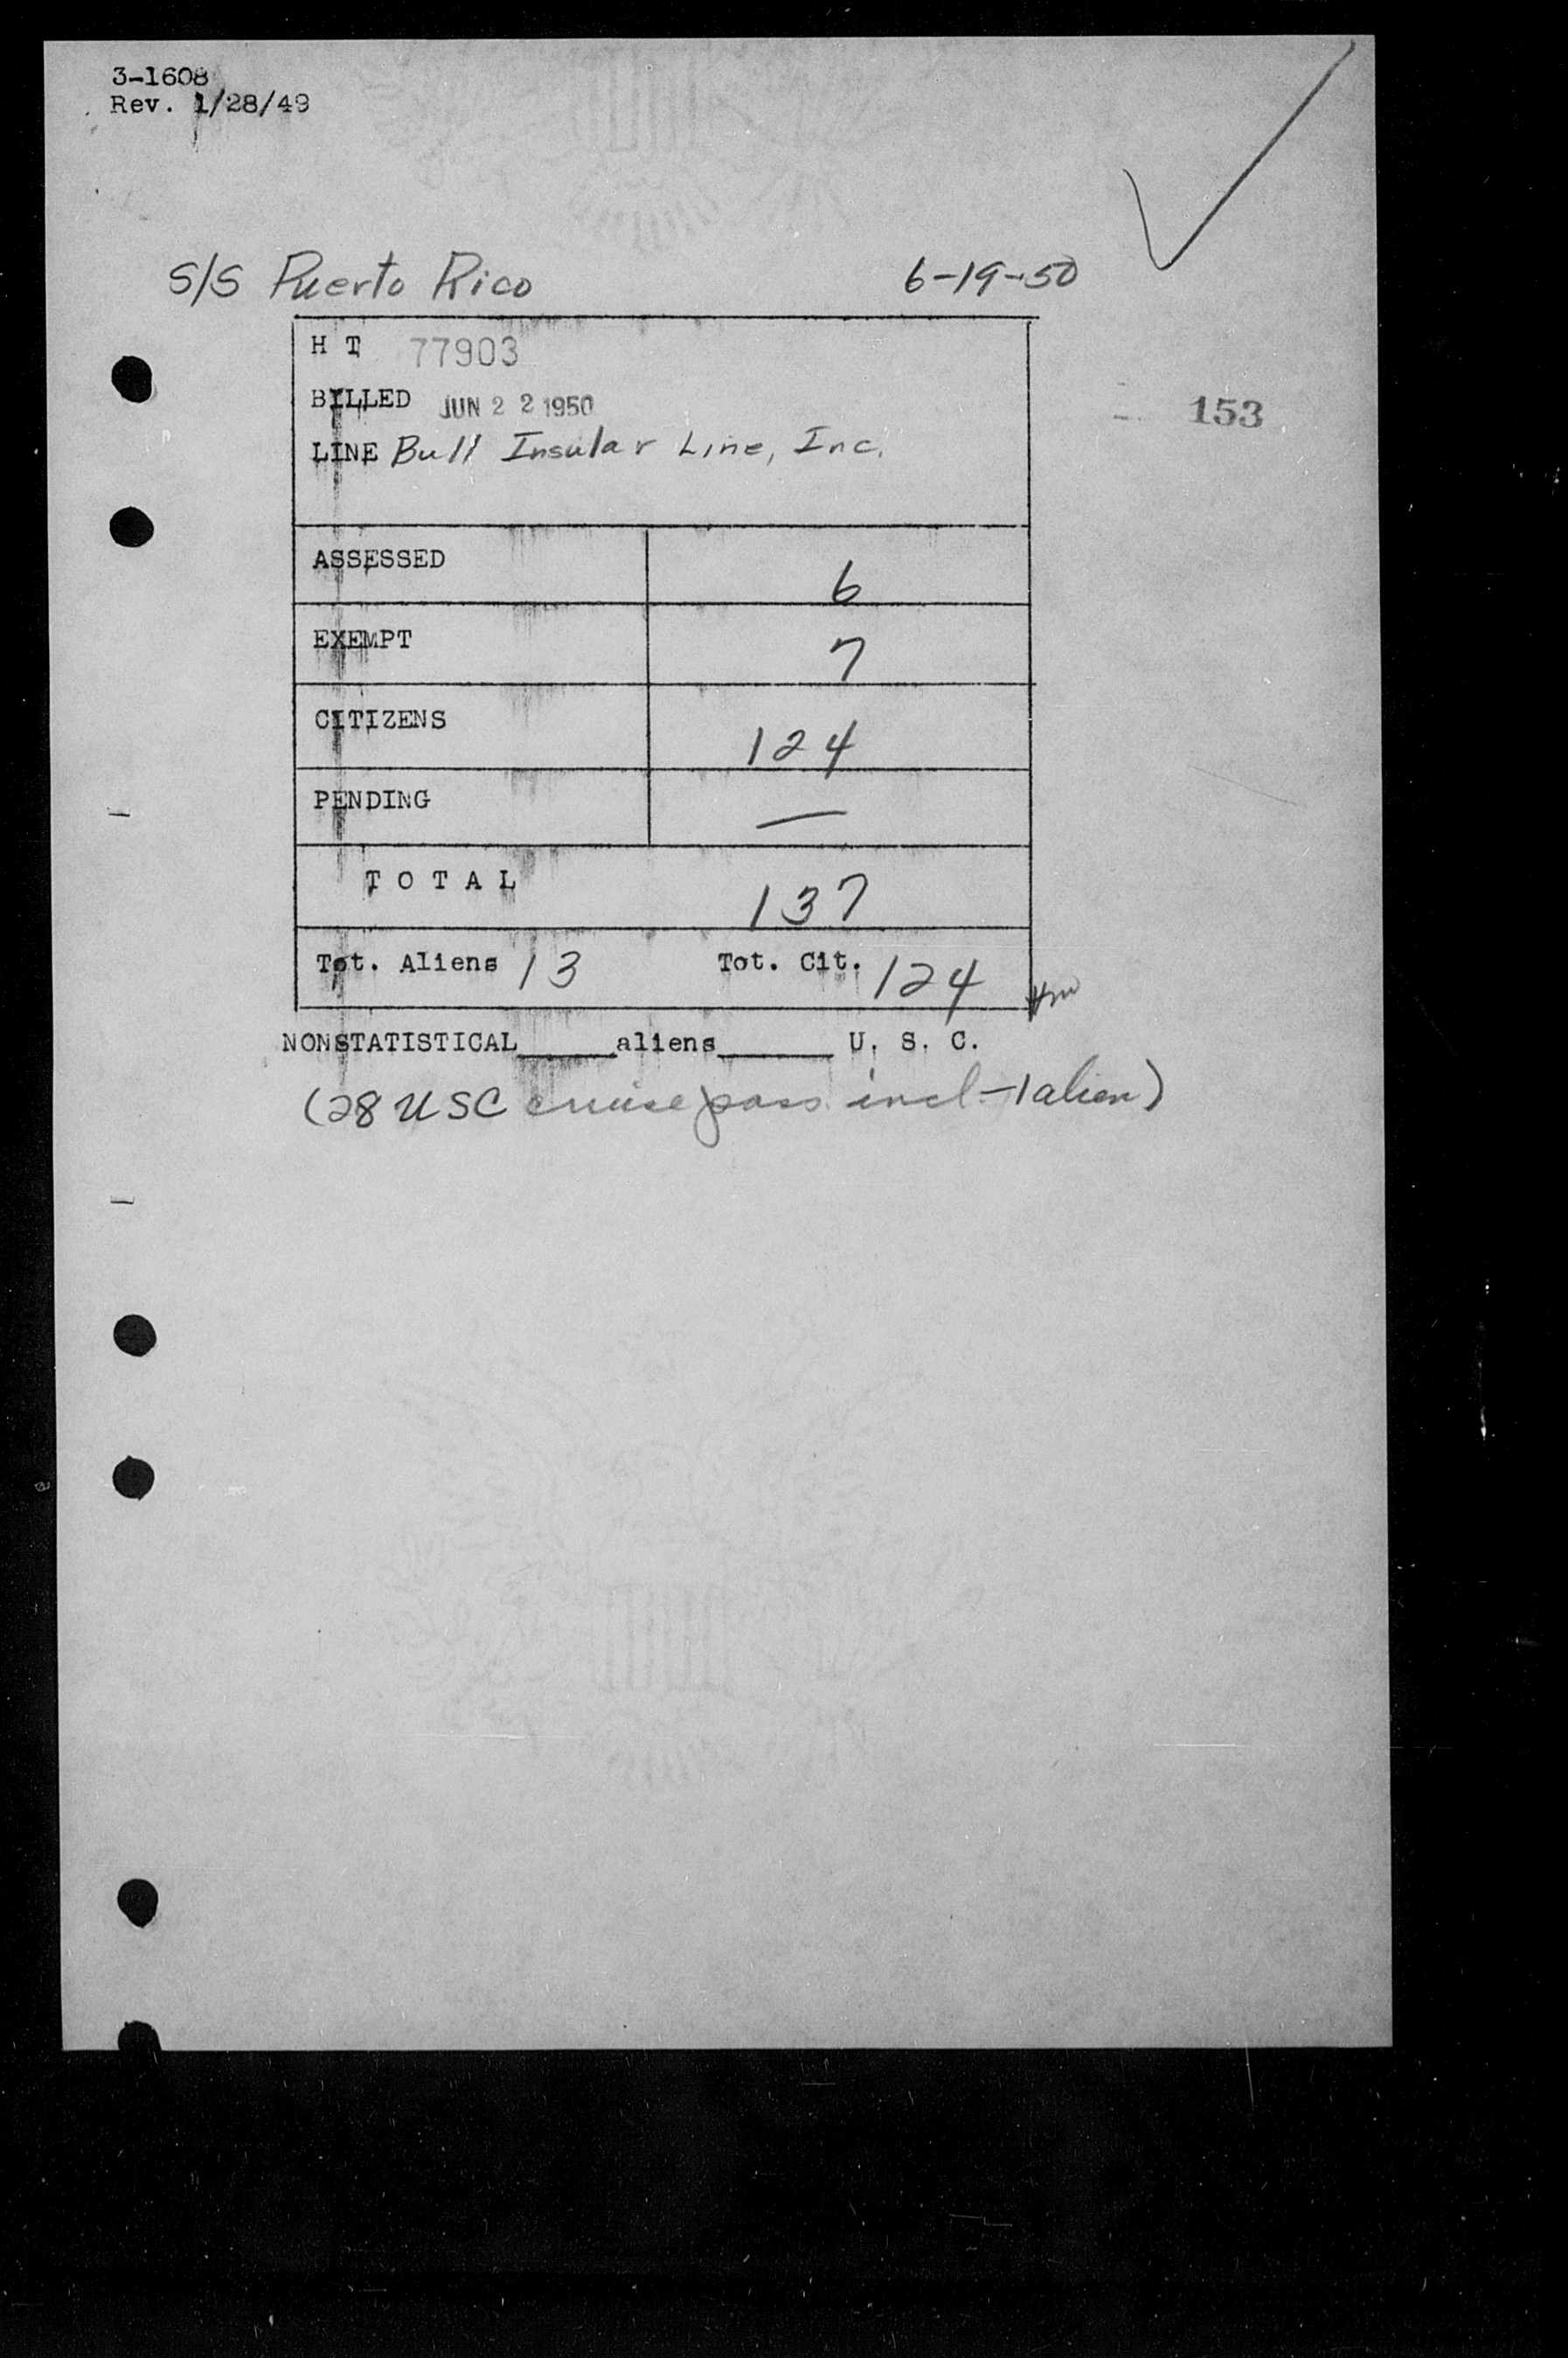 3-1608
Rev. 1/28/49
S/S Puerto Rico 6-19-50
H T 77903
BILLED JUN 22 1950
153
LINE Bull Insular Line, Inc.
ASSESSED 6
EXEMPT 7
CITIZENS 124
PENDING —
TOTAL 137
Tot. Aliens 13 Tot. Cit. 124
NONSTATISTICAL_____aliens______ U. S. C.
(28 USC cruise pass. incl - 1 alien)